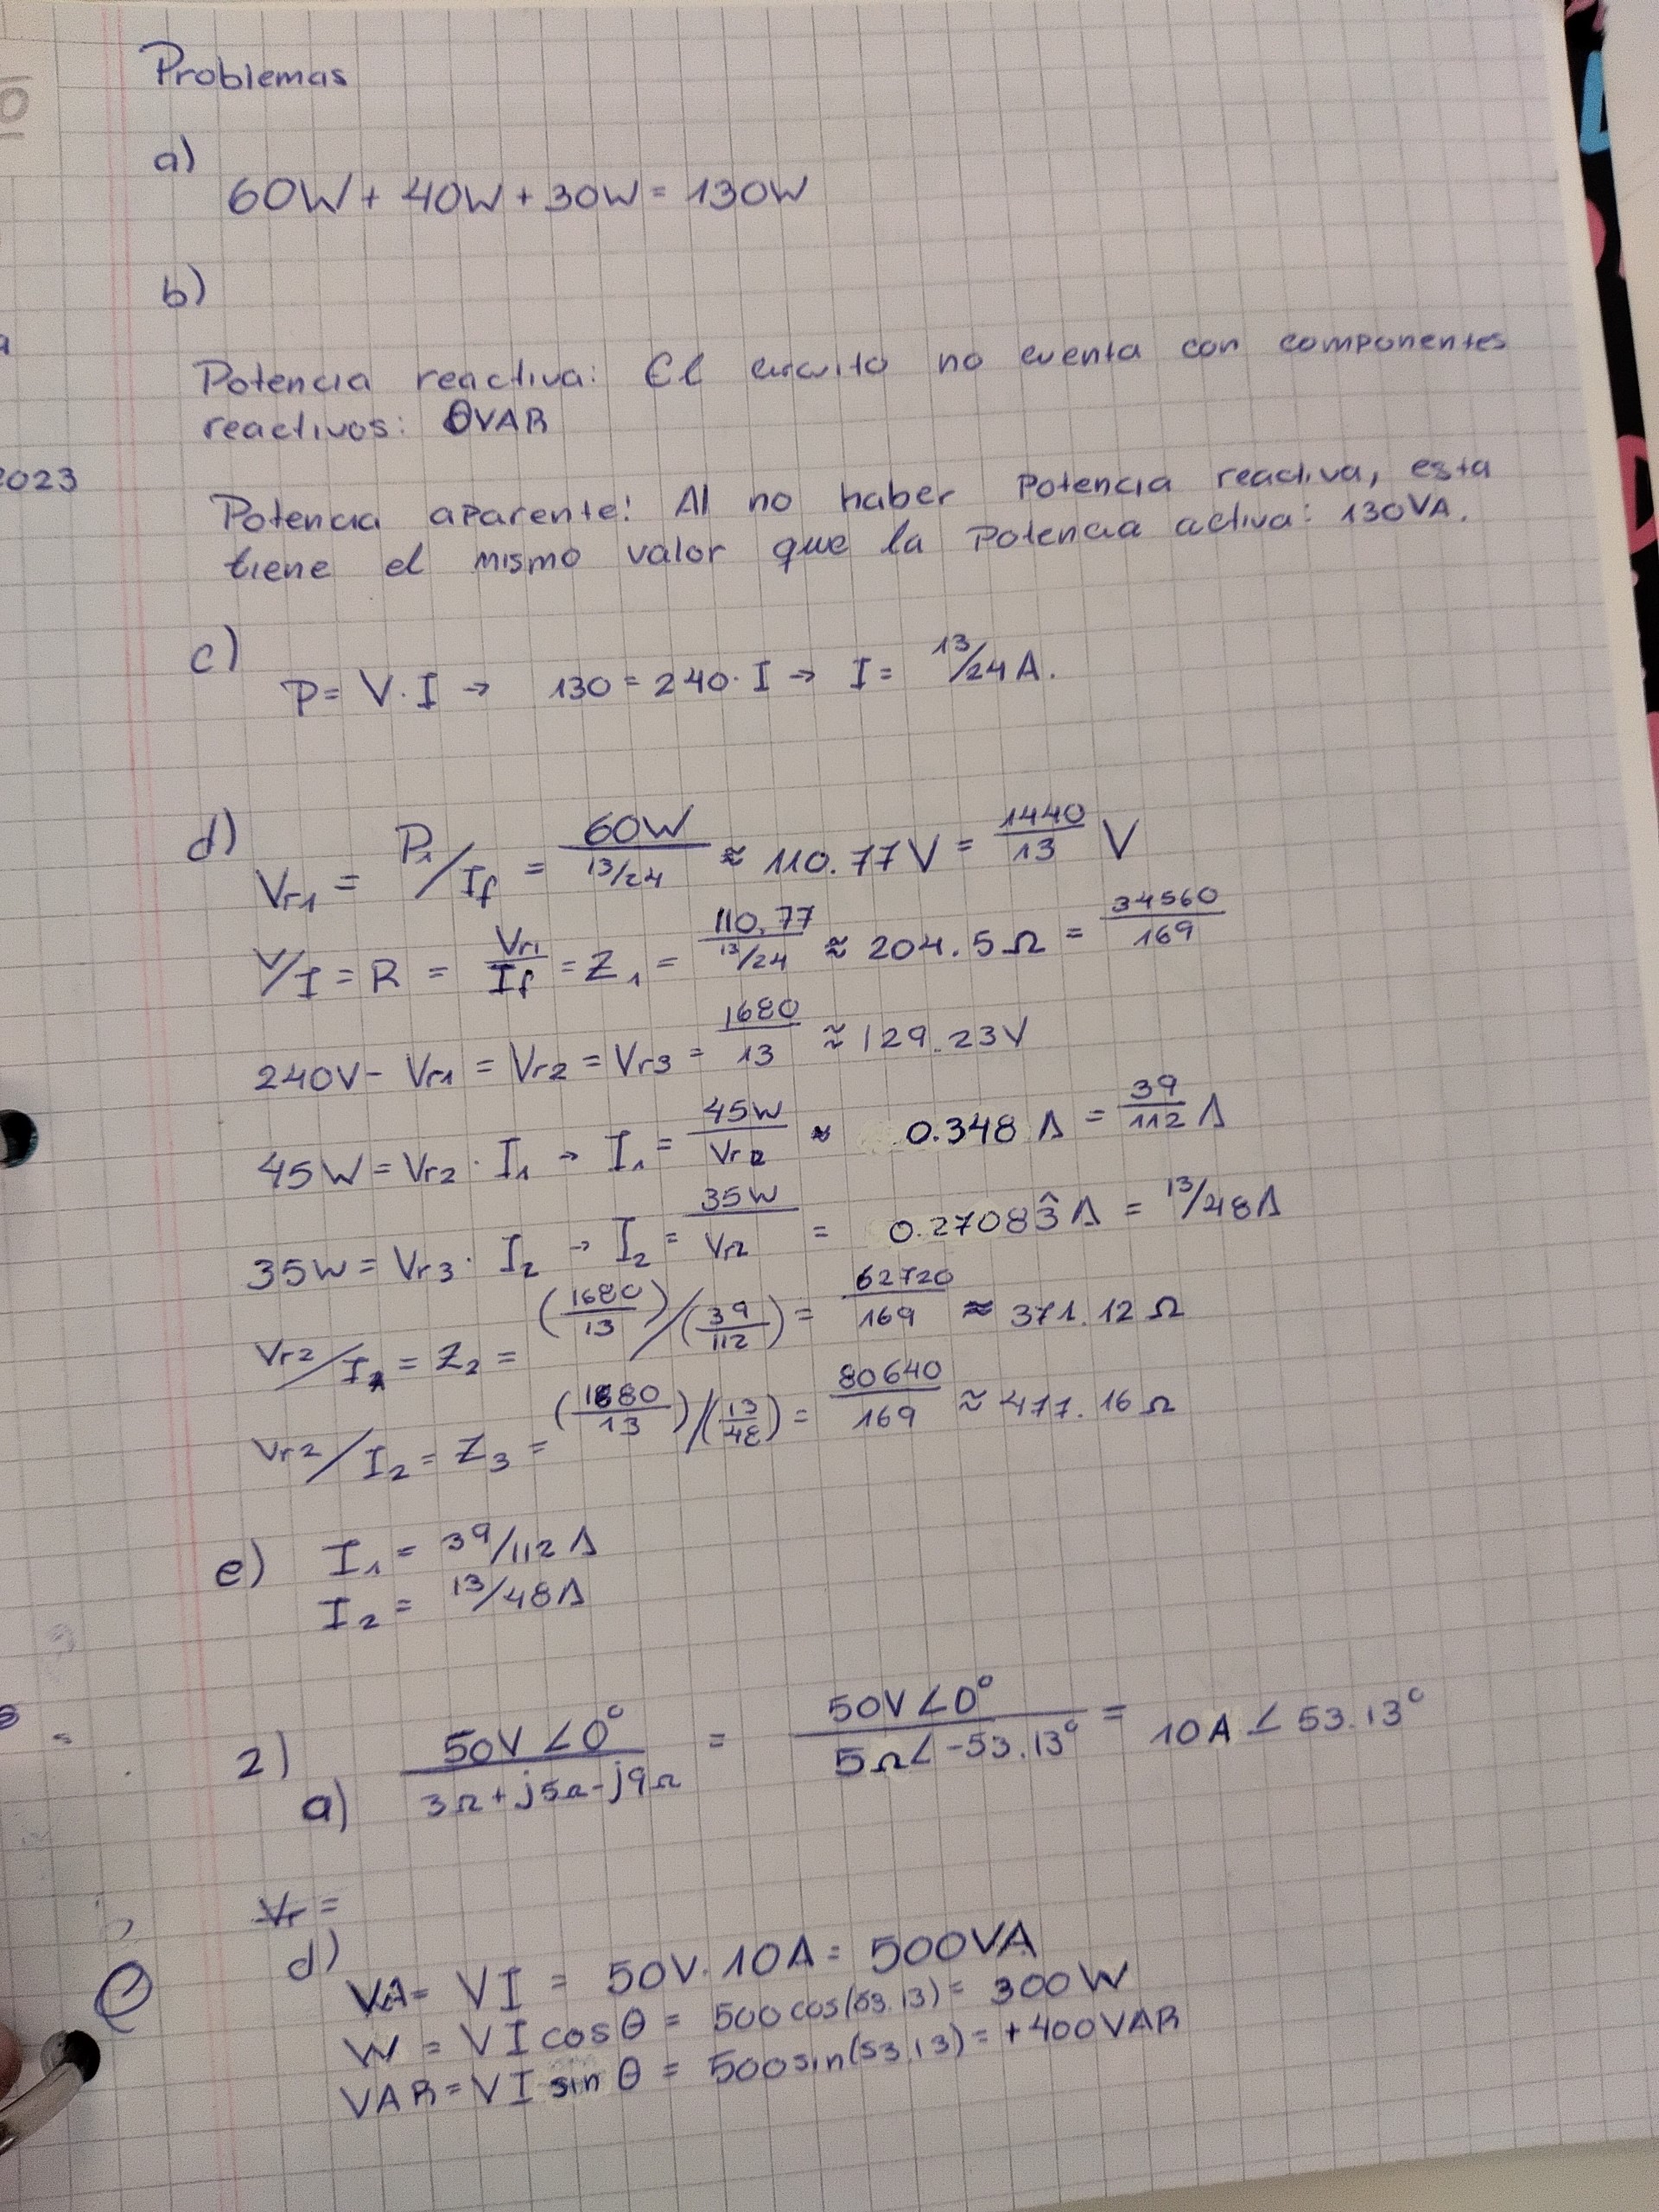 Problemas
a)
60W + 40W + 30W = 130W
b)
Potencia reactiva: El circuito no cuenta con componentes
reactivos: 0VAR
2023
Potencia aparente: Al no haber potencia reactiva, esta
tiene el mismo valor que la potencia activa: 130VA.
c)
P = V·I → 130 = 240·I → I = 13/24 A.
d)
Vr1 = P1/If = 60W/(13/24) ≈ 110.77V = 1440/13 V
V/I = R = Vr1/If = Z1 = 110.77/(13/24) ≈ 204.5Ω = 34560/169
240V - Vr1 = Vr2 = Vr3 = 1680/13 ≈ 129.23V
45W = Vr2 · I1 → I1 = 45W/Vr2 ≈ 0.348 A = 39/112 A
35W = Vr3 · I2 → I2 = 35W/Vr2 = 0.27083̂ A = 13/48A
Vr2/I1 = Z2 = (1680/13)/(39/112) = 62720/169 ≈ 371.12 Ω
Vr2/I2 = Z3 = (1680/13)/(13/48) = 80640/169 ≈ 477.16 Ω
e) I1 = 39/112 A
I2 = 13/48A
2)
a) 50V∠0°/(3Ω + j5Ω - j9Ω) = 50V∠0°/(5Ω∠-53.13°) = 10A ∠ 53.13°
Vr =
d)
VA = VI = 50V·10A = 500VA
W = VI cosθ = 500cos(53.13) = 300W
VAR = VI sinθ = 500sin(53.13) = +400VAR